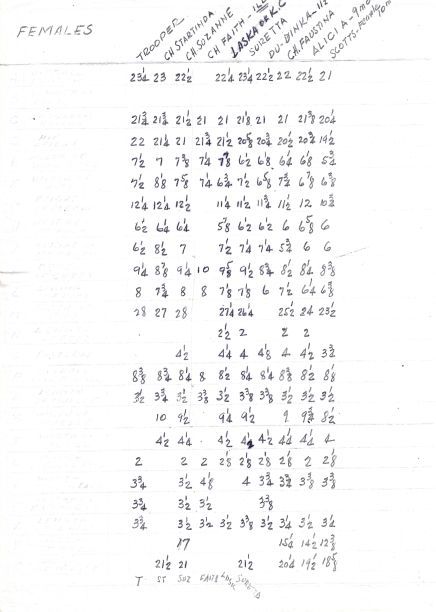 FEMALES
TROOPER
CH STARTINDA
CH SUZANNE
CH FAITH
LASKA OR K.C
SURETTA
DU-DINKA
CH. FAUSTINA
ALICIA - 9 mo
SCOTTS - Female
23¼ 23 22½ 22¼ 23¼ 22½ 22½ 22½ 21
21¾ 21¾ 21½ 21 21 21⅛ 21 21 21⅜ 20¼
22 21¼ 21 21¾ 21½ 20⅝ 20¾ 20½ 20¾ 19½
7½ 7 7⅜ 7¼ 7⅛ 6½ 6⅛ 6¼ 6⅛ 5¾
7½ 8⅛ 7⅝ 7¼ 6¾ 7½ 6⅝ 7¾ 6⅞ 6⅜
12¼ 12¼ 12½ 11¼ 11½ 11¾ 11½ 12 10¾
6½ 6¼ 6¼ 5⅞ 6½ 6½ 6 6⅝ 6
6½ 8½ 7 7½ 7¼ 7¼ 5¾ 6 6
9¼ 8⅞ 9¼ 10 9⅝ 9½ 8¾ 8½ 8¼ 8⅜
8 7¾ 8 8 7⅛ 7⅛ 6 7½ 6¼ 6⅜
28 27 28 27¼ 26¼ 25½ 24 23½
2½ 2 2 2
4½ 4¼ 4 4⅛ 4 4½ 3½
8⅜ 8¾ 8¼ 8 8½ 8¼ 8¼ 8⅜ 8½ 8⅛
3½ 3¾ 3½ 3⅜ 3½ 3⅜ 3⅜ 3½ 3½ 3½
10 9½ 9¼ 9½ 9 9¾ 8½
4½ 4¼ 4½ 4½ 4½ 4¼ 4¼ 4
2 2 2 2⅛ 2⅛ 2⅛ 2⅛ 2 2⅛
3¾ 3½ 4⅛ 4 3¾ 3¾ 3⅜ 3⅜
3¾ 3½ 3½ 3⅜
3¾ 3½ 3½ 3½ 3⅜ 3½ 3¼ 3½ 3¼
17 15¼ 14½ 12⅜
21½ 21 21½ 20¼ 19½ 18⅝
T ST SUZ FAITH LASK SURETTA